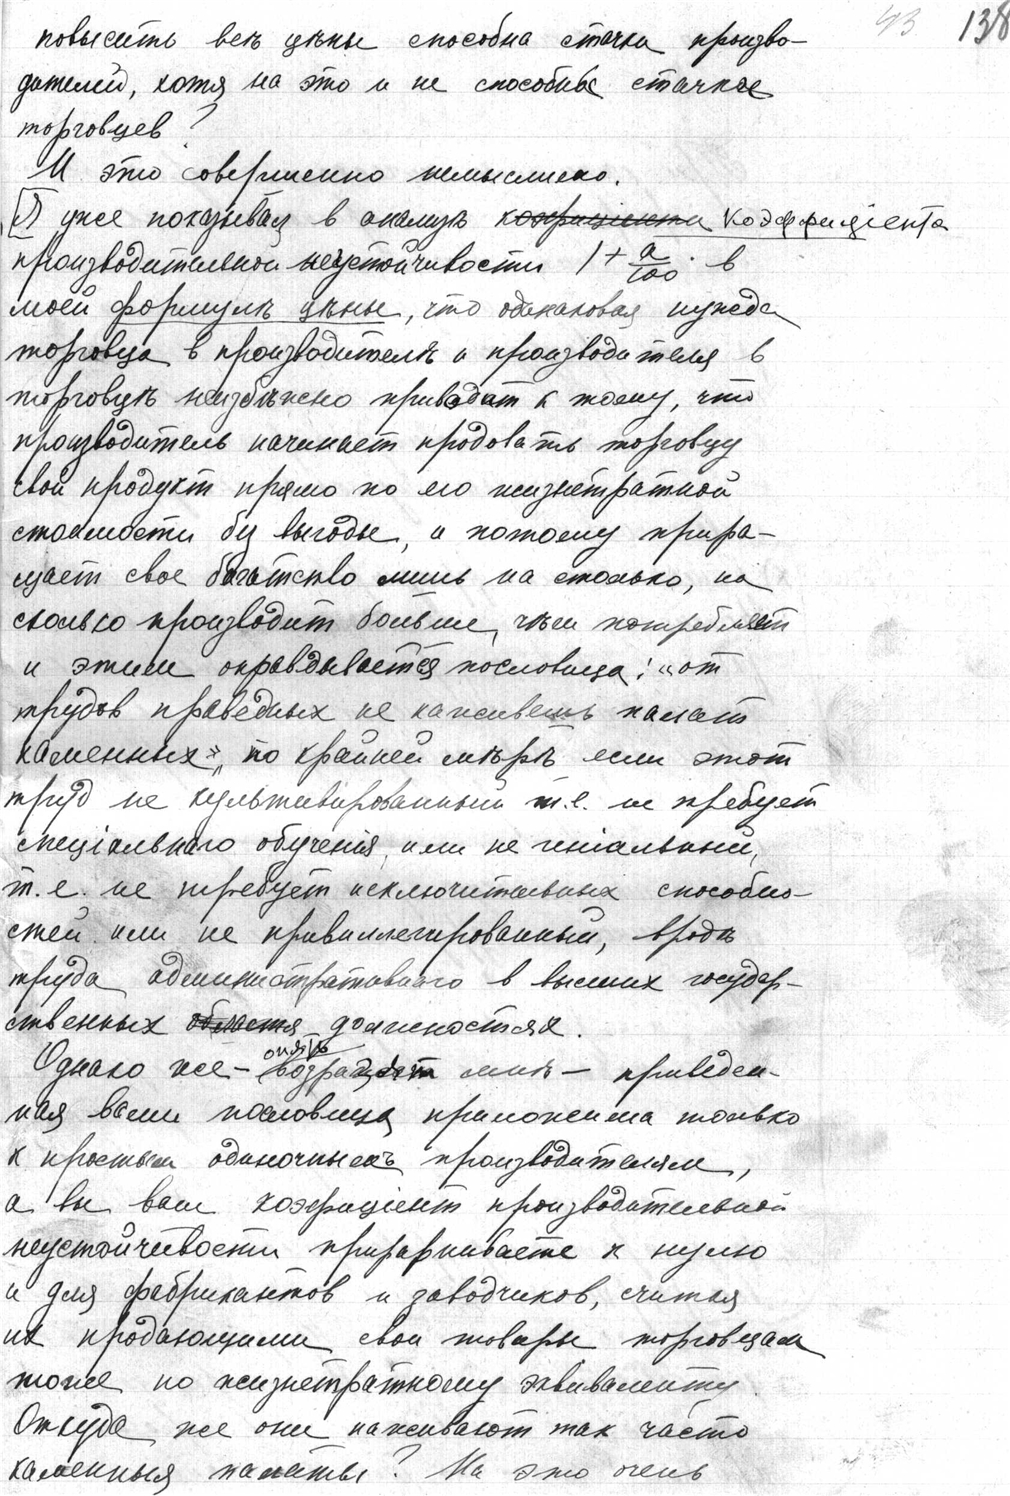 43 138
повысить всѣ цѣны способна стачка произво-
дителей, хотя на это и не способны стачки
торговцев?
И это совершенно немыслимо.
Я уже показывал в анализѣ коэфициента коэффициента
производительной неустойчивости 1 + a/100 в
моей формулѣ цѣны, что одинаковая нужда
торговца в производителѣ и производителя в
торговцѣ неизбѣжно приводит к тому, что
производитель начинает продовать торговцу
свой продукт прямо по его жизнетратной
стоимости без выгоды, и потому прира-
щает свое богатство лишь на столько, на
сколько производит больше, чѣм потребляет
и этим оправдывается пословица: «от
трудов праведных не наживешь палат
каменных», по крайней мѣрѣ если этот
труд не культивированный т.е. не требует
спеціальнаго обученія, или не геніальный,
т.е. не требует исключительных способно-
стей или не привиллегированный, вродѣ
труда административнаго в высших государ-
ственных областя должностях.
Однако же – опять возразят мнѣ – приведен-
ная вами пословица приложима только
к простым одиночным производителям,
а вы ваш коэфиціент производительной
неустойчивости приравниваете к нулю
и для фабрикантов и заводчиков, считая
их продающими свои товары торговцам
тоже по жизнетратному эквиваленту.
Откуда же они наживают так часто
каменныя палаты? На это очень